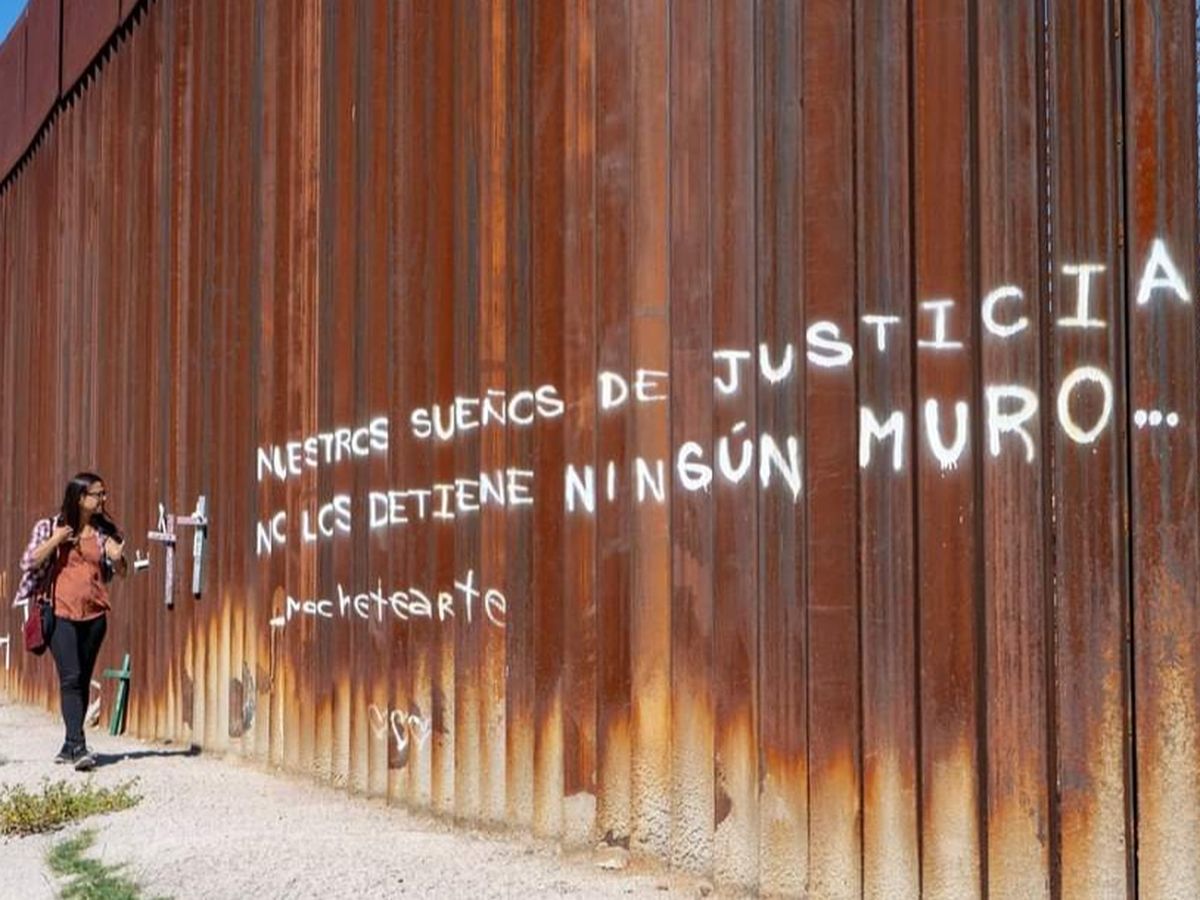 NUESTROS SUEÑOS DE JUSTICIA
NO LOS DETIENE NINGÚN MURO...
_machetearte